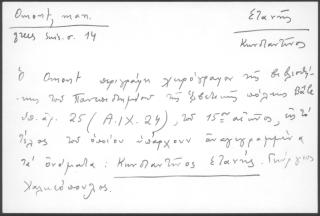 Omont, man. Στανῆς
grecs Suis. σ. 14 Κωνσταντῖνος
Ὁ Omont περιγράφει χειρόγραφον τῆς Βιβλιοθή-
κης τοῦ Πανεπιστημίου τῆς Ἑλβετικῆς πόλεως Bâle
ὑπ. ἀρ. 25 (A.IX.24), τοῦ 15ου αἰῶνος, εἰς τὸ
τέλος τοῦ ὁποίου ὑπάρχουν ἀναγεγραμμένα
τὰ ὀνόματα: Κωνσταντῖνος Στανῆς. Γεώργιος
Χαλκεόπουλος.